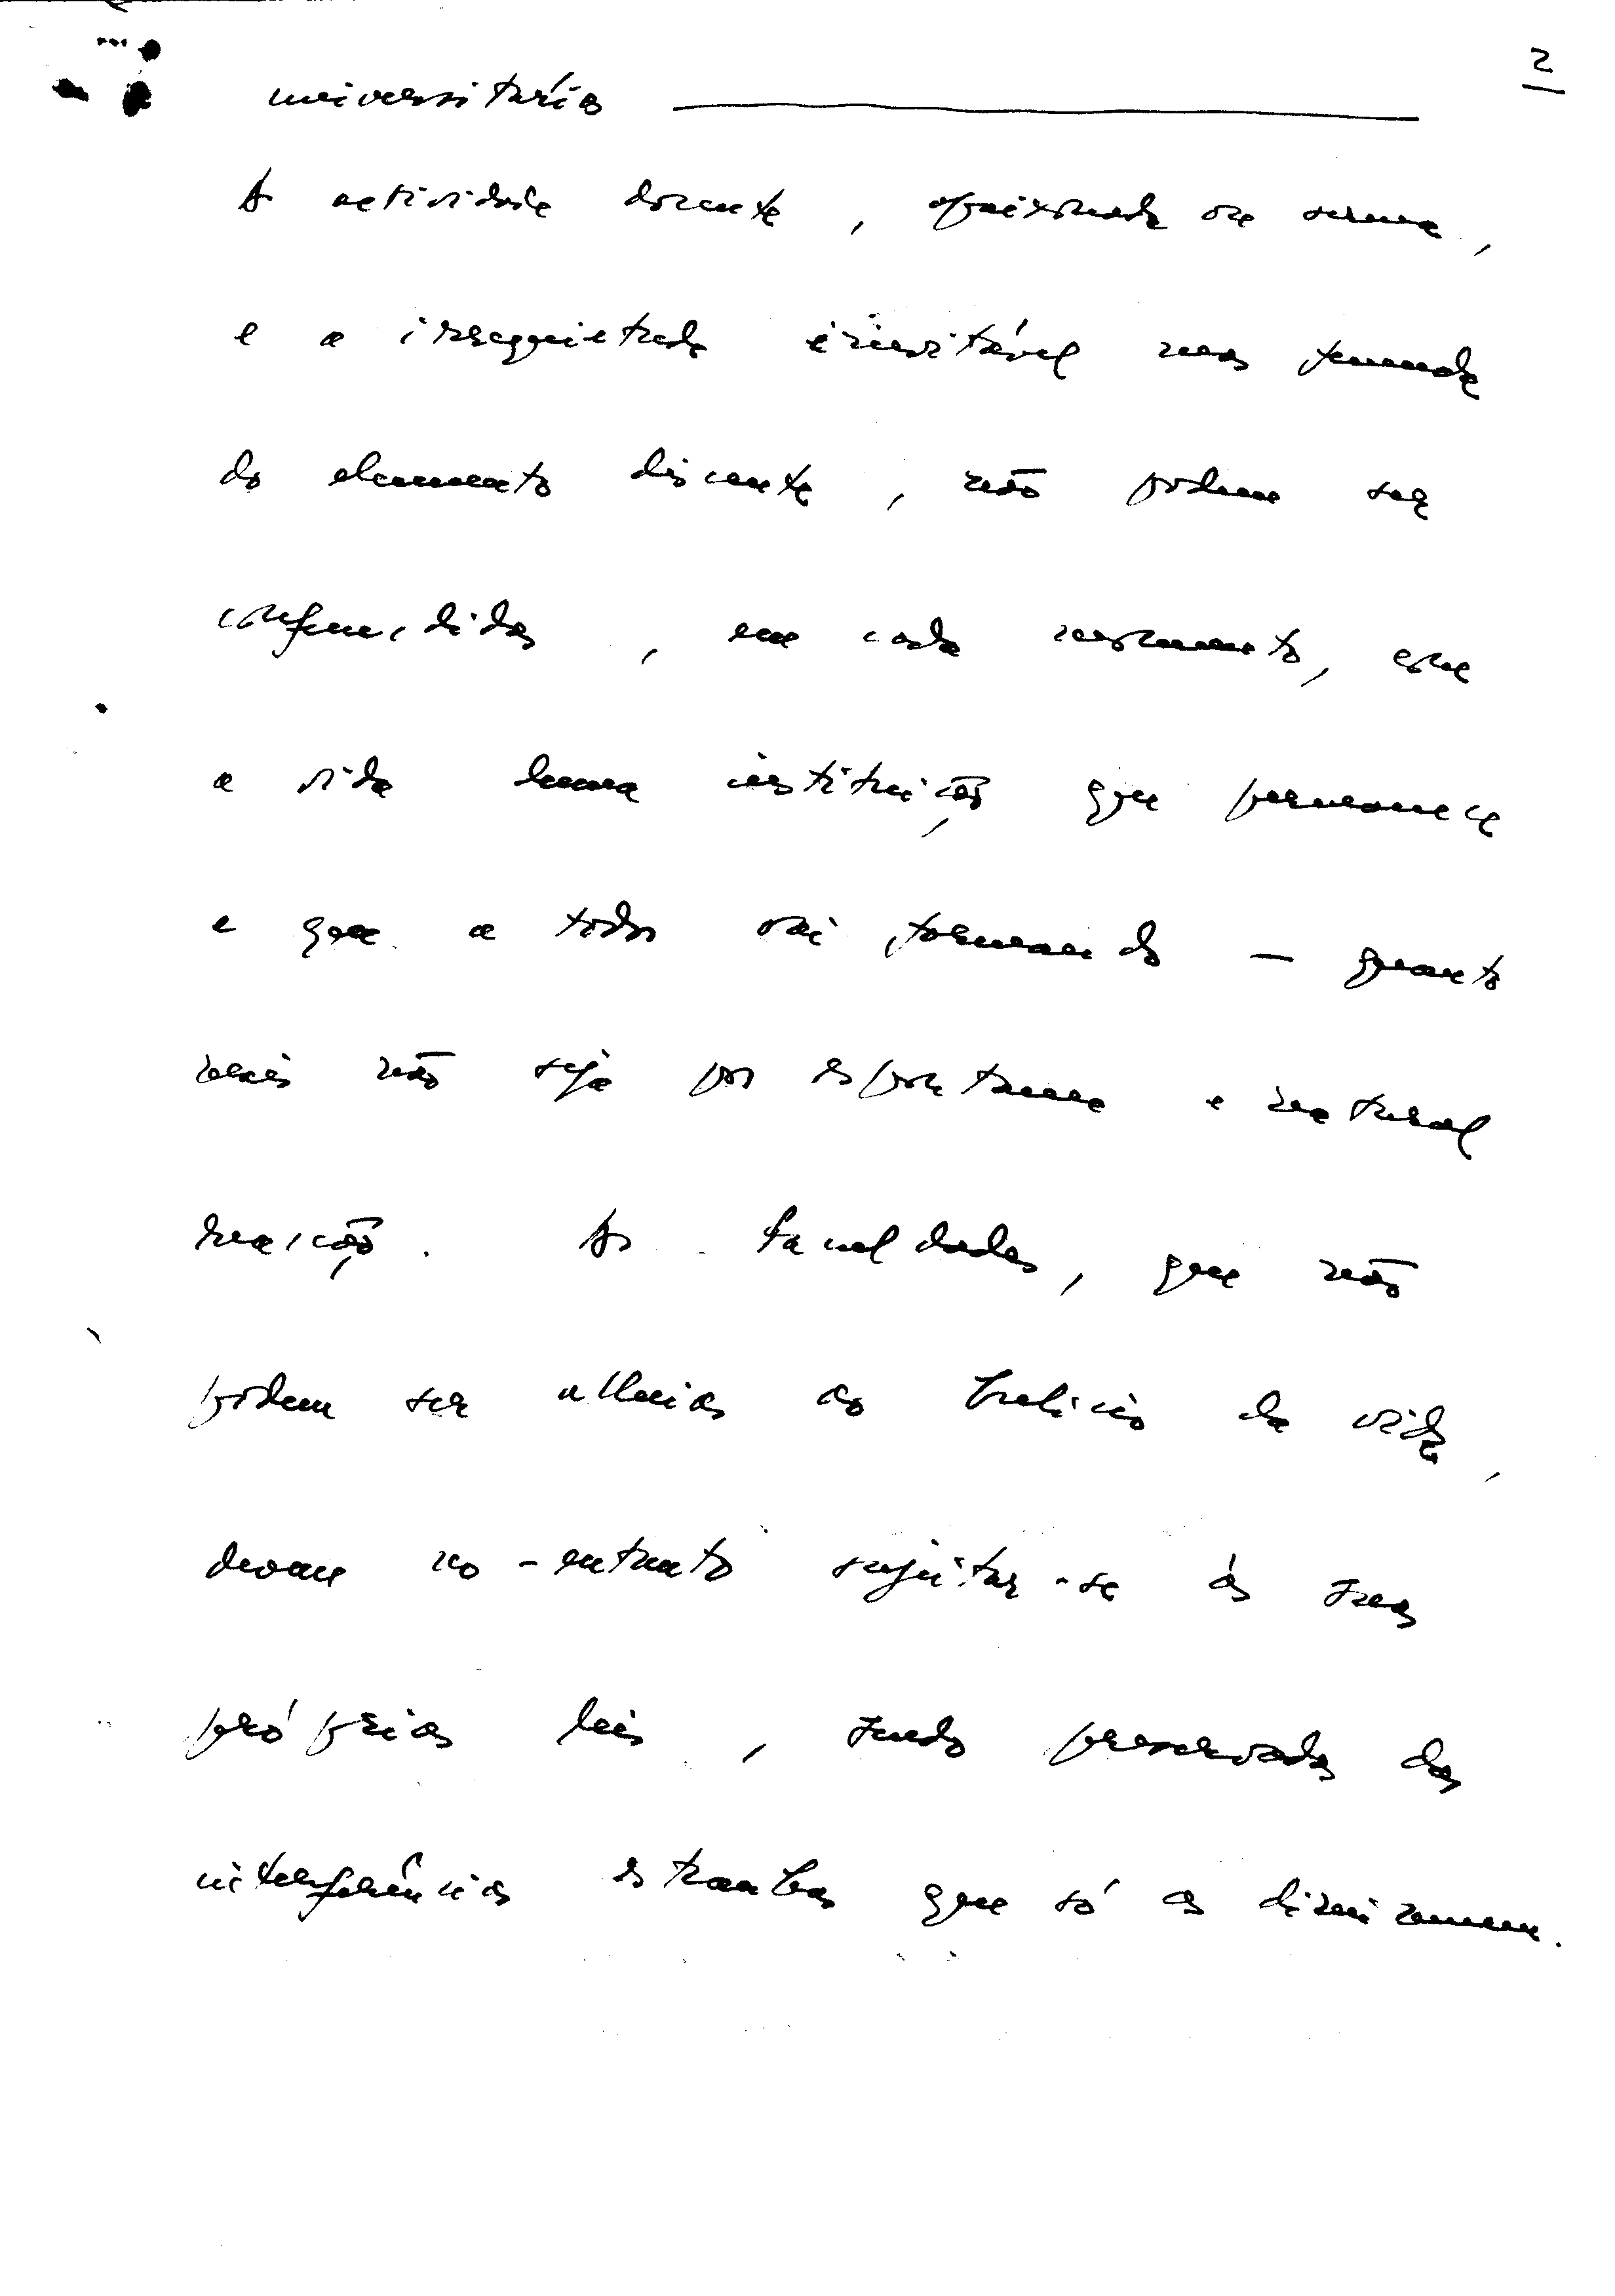 2
universitárias
A actividade docente, apaixonada ou serena,
e a irrequietude inevitável mas fecunda
do elemento discente, não podem ser
confundidas, em cada momento, com
a vida duma instituição que permanece
e que a todos vai formando — quanto
mais não seja por espontanea e natural
reacção. As faculdades, que não
podem ser alheias ao bulício da vida,
devem no-entanto sujeitar-se às suas
próprias leis, sendo preservadas das
interferências estranhas que só as diminuem.